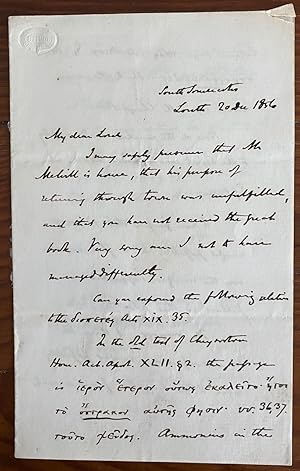 Louth 20 Dec 1856
My dear Lord
I may safely presume that Mr
is home, that his purpose of
returning through town was unfulfilled,
and that you have not received the great
book. Very sorry am I not to have
managed differently.
Can you expound the following relative
to the διοπετές Acts XIX. 35.
In the old text of Chrysostom
Hom. Act. Apost. XLII. § 2. the passage
is ἱερὸν ἕτερον οὕτως ἐκαλεῖτο· ἤτοι
τὸ ὄστρακον αὐτῆς φησιν· vv. 36.37.
τοῦτο ψεῦδος. Ammonius in the